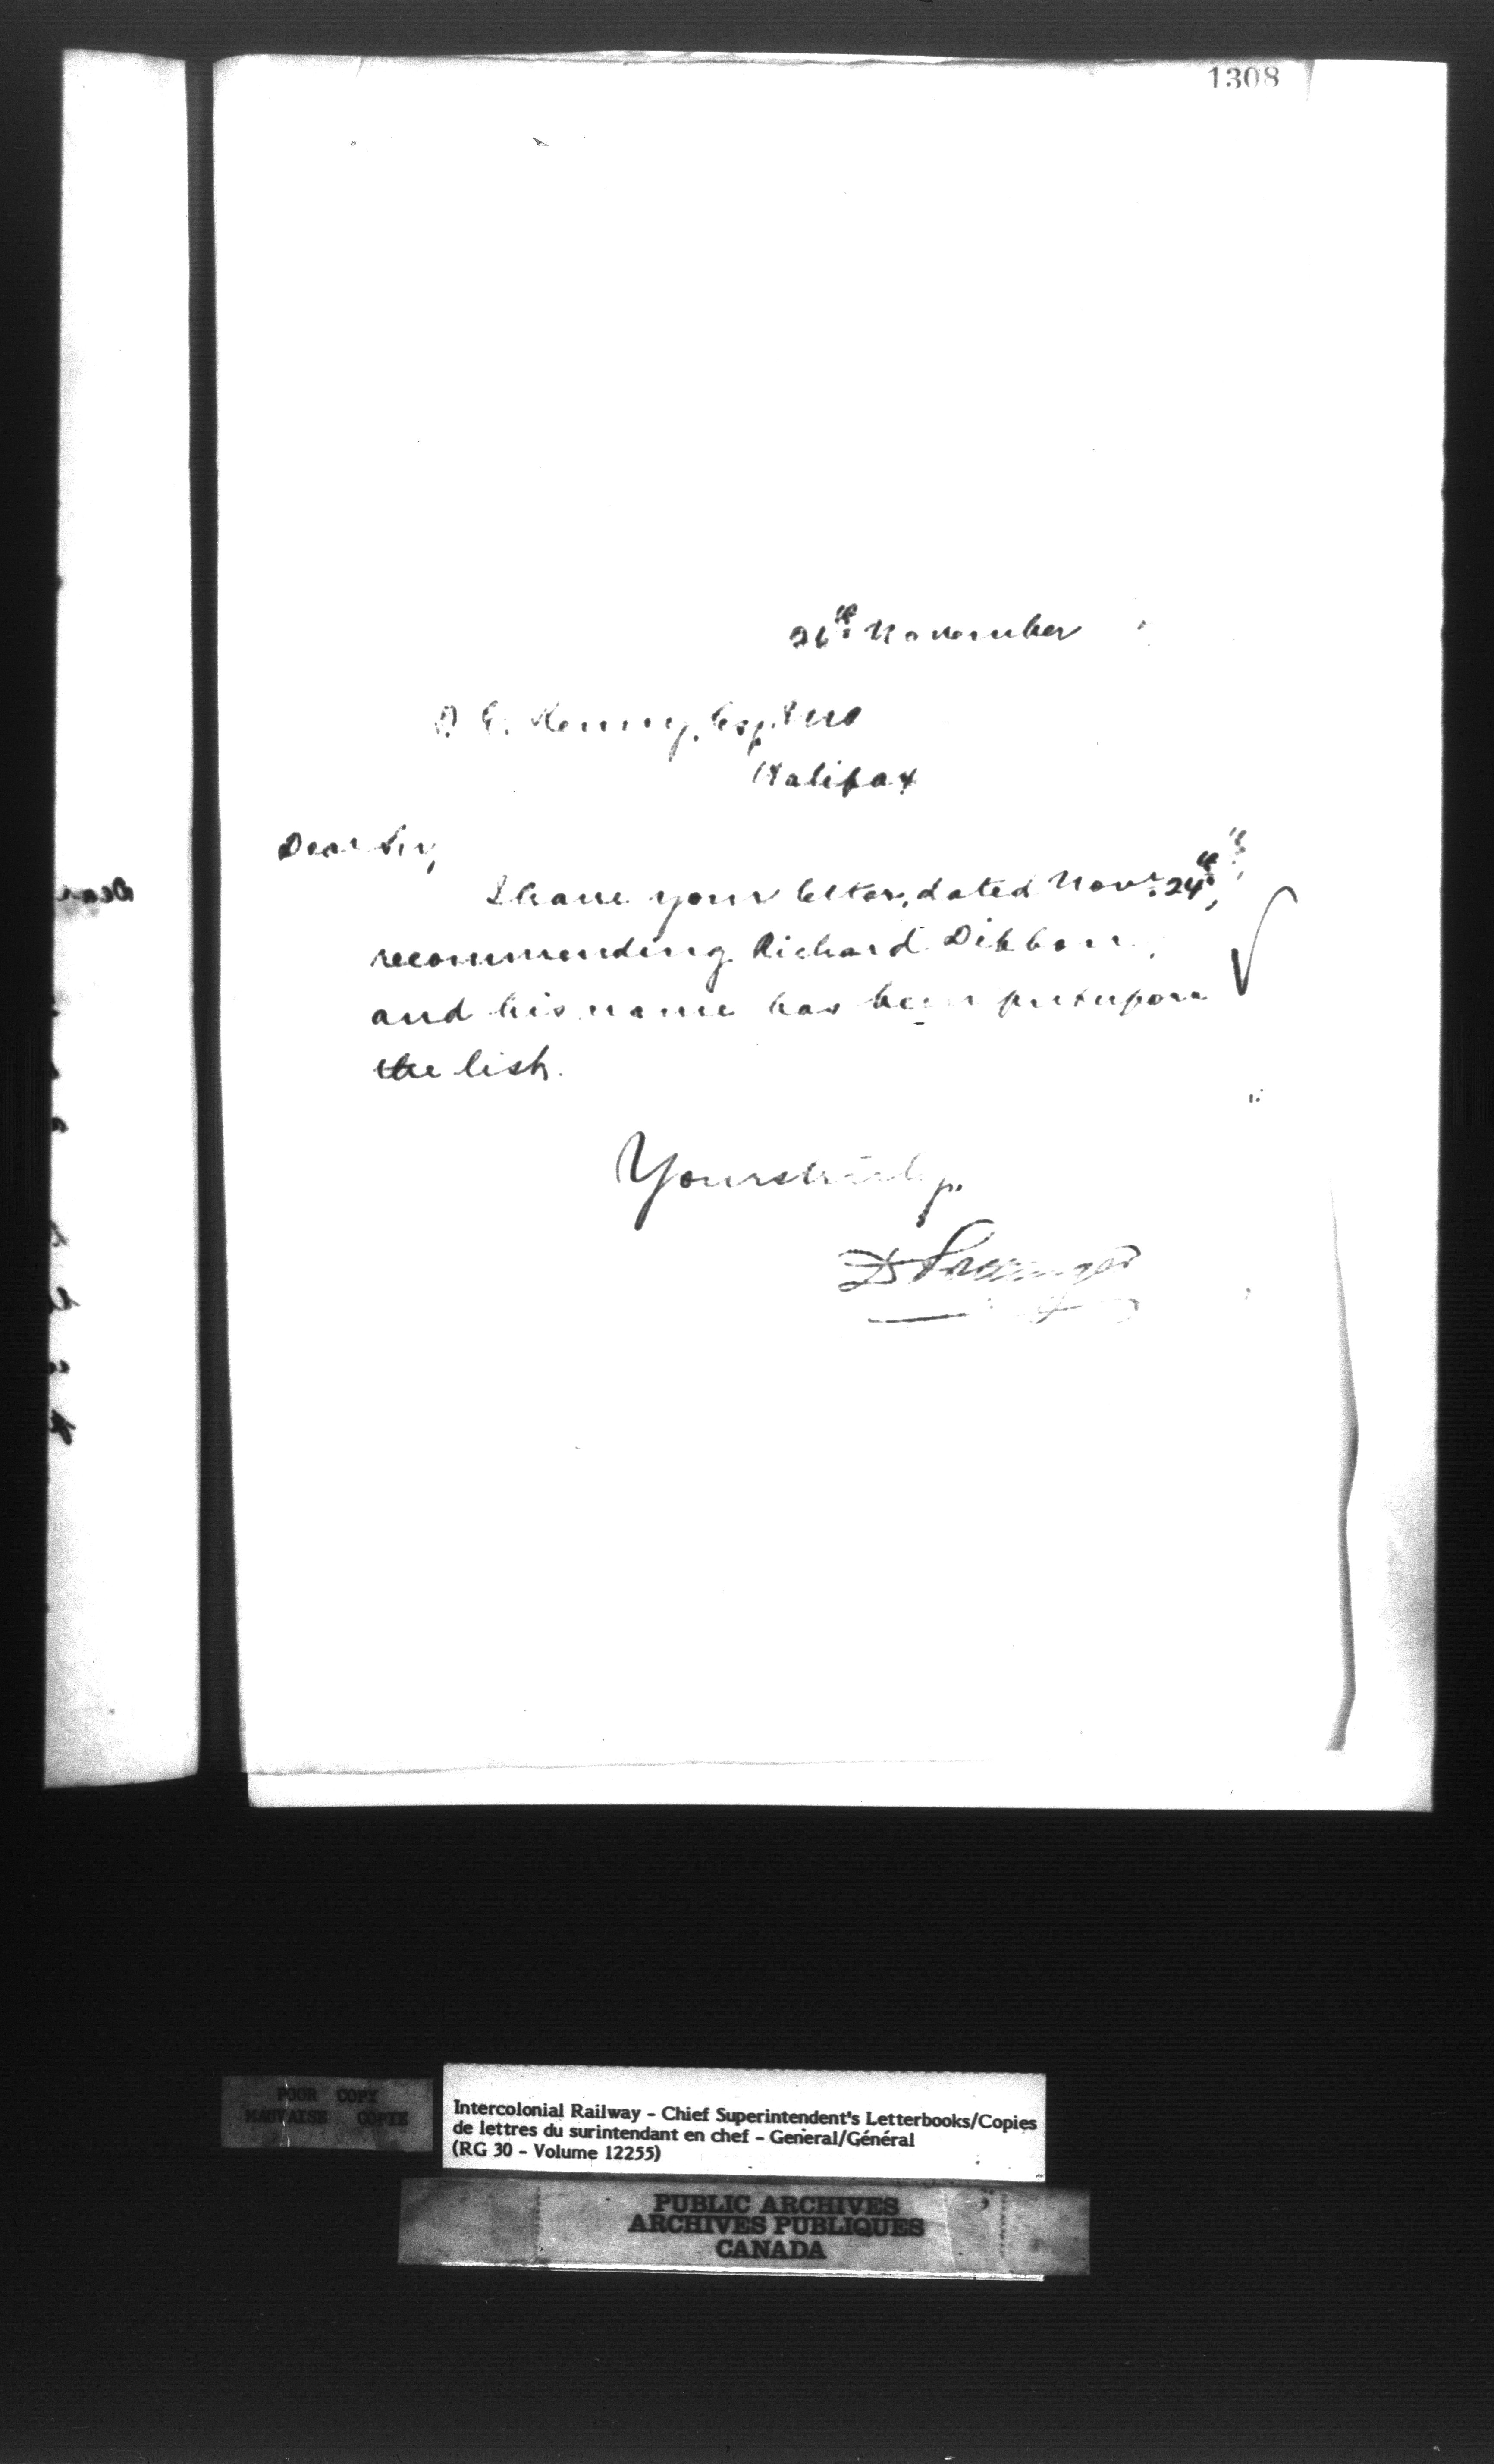 1308
26th November
Kenny, Esq
Halifax
Dear Sir,
I have your letter, dated Novr. 24th,
recommending Richard Dibbon,
and his name has been put upon
the list.
Yours truly,
D Pottinger
Dear
POOR COPY
MAUVAISE COPIE
Intercolonial Railway - Chief Superintendent's Letterbooks/Copies
de lettres du surintendant en chef - General/Général
(RG 30 - Volume 12255)
PUBLIC ARCHIVES
ARCHIVES PUBLIQUES
CANADA